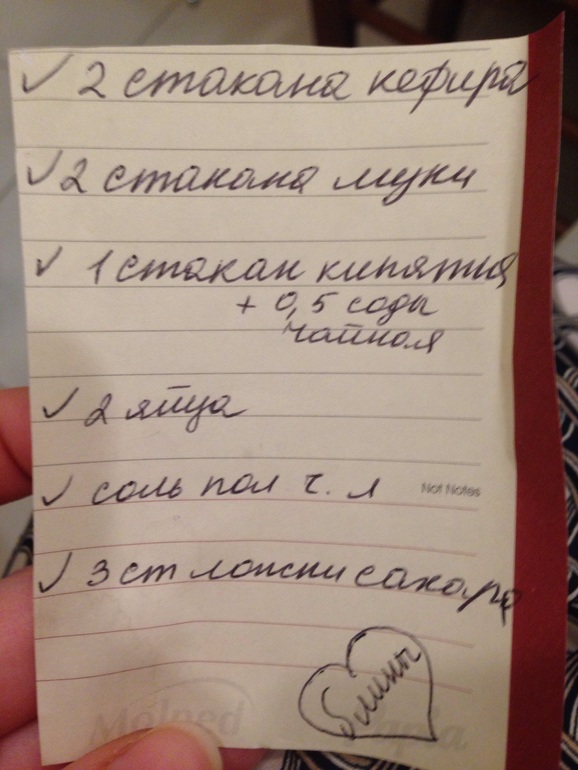 ✓ 2 стакана кефира
✓ 2 стакана муки
✓ 1 стакан кипятка
+ 0,5 соды
чайная
✓ 2 яйца
✓ соль пол ч. л
Not Notes
✓ 3 ст ложки сахара
блины
Molped